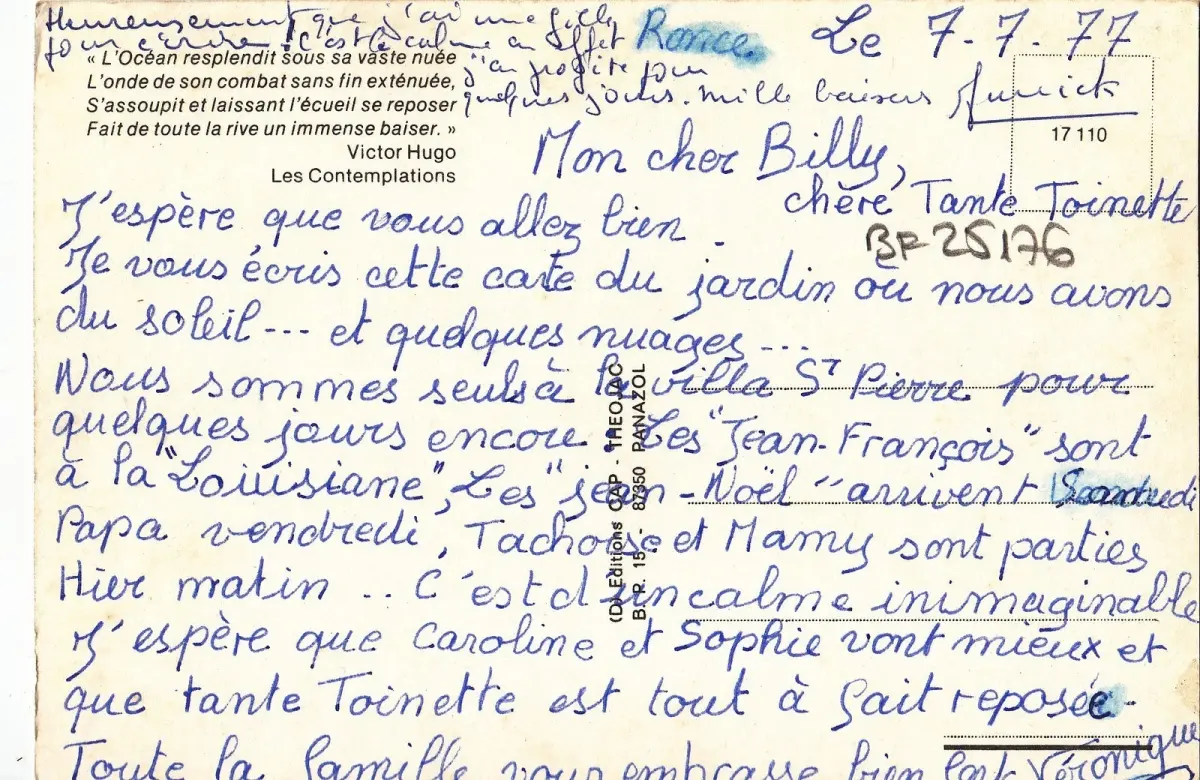 Heureusement que j'ai une fille
pour écrire. C'est le calme en effet
j'en profite pour
quelques jours. Mille baisers Annick
Rance Le 7-7-77
« L'Océan resplendit sous sa vaste nuée
L'onde de son combat sans fin exténuée,
S'assoupit et laissant l'écueil se reposer
Fait de toute la rive un immense baiser. »
Victor Hugo
Les Contemplations
17 110
Mon cher Billy,
chère Tante Toinette
BF 25176
J'espère que vous allez bien.
Je vous écris cette carte du jardin où nous avons
du soleil --- et quelques nuages ---
Nous sommes seuls à la villa St Pierre pour
quelques jours encore. Les "Jean-François" sont
à la "Louisiane", Les "jean-Noël" arrivent Samedi
Papa vendredi, et Mamy sont parties
Hier matin .. C'est d'un calme inimaginable
J'espère que Caroline et Sophie vont mieux et
que tante Toinette est tout à fait reposée.
Toute la famille vous embrasse bien fort Véronique
(D) Editions CAP - THEOJAC
B. P. 15 - 87350 PANAZOL